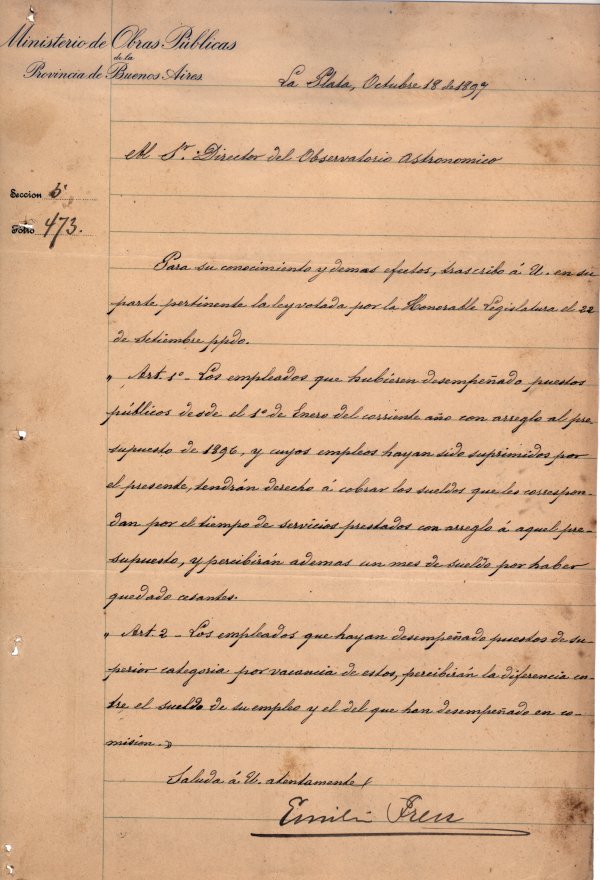 Ministerio de Obras Públicas
de la
Provincia de Buenos Aires
La Plata, Octubre 18 de 1897
Al Sr. Director del Observatorio Astronomico
Seccion 5a
Folio 473.
Para su conocimiento y demas efectos, trascribo á U. en su
parte pertinente la ley votada por la Honorable Legislatura el 22
de Setiembre ppdo.
" Art. 1o - Los empleados que hubieren desempeñado puestos
públicos desde el 1o de Enero del corriente año con arreglo al pre-
supuesto de 1896, y cuyos empleos hayan sido suprimidos por
el presente, tendrán derecho á cobrar los sueldos que les correspon-
dan por el tiempo de servicios prestados con arreglo á aquel pre-
supuesto, y percibirán ademas un mes de sueldo por haber
quedado cesantes.
" Art. 2 - Los empleados que hayan desempeñado puestos de su-
perior categoria por vacancia de estos, percibirán la diferencia en-
tre el sueldo de su empleo y el del que han desempeñado en co-
mision."
Saluda á U. atentamente
Emilio Frers